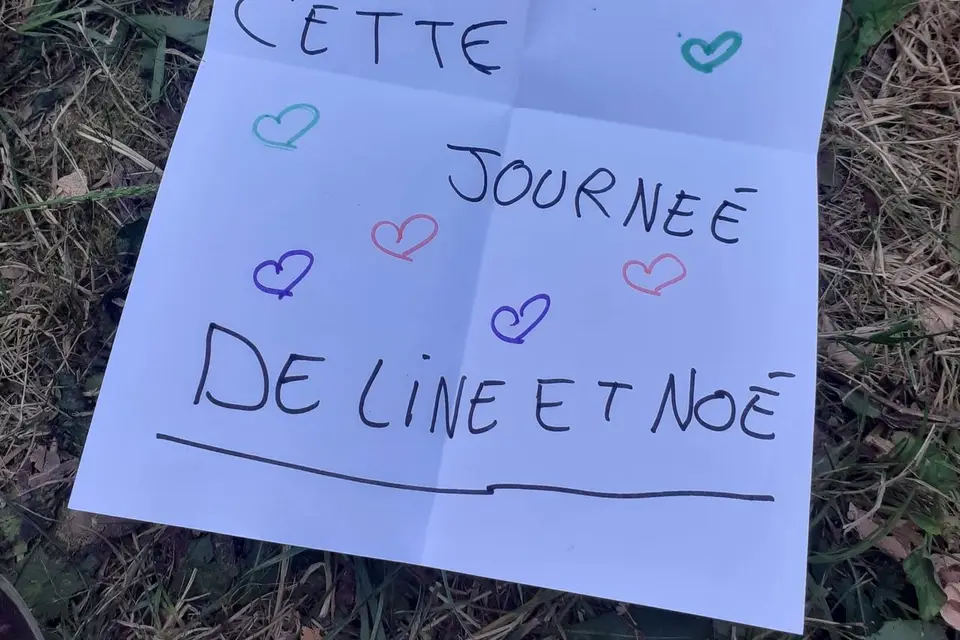 CETTE
JOURNEÉ
DE LiNE ET NOÉ